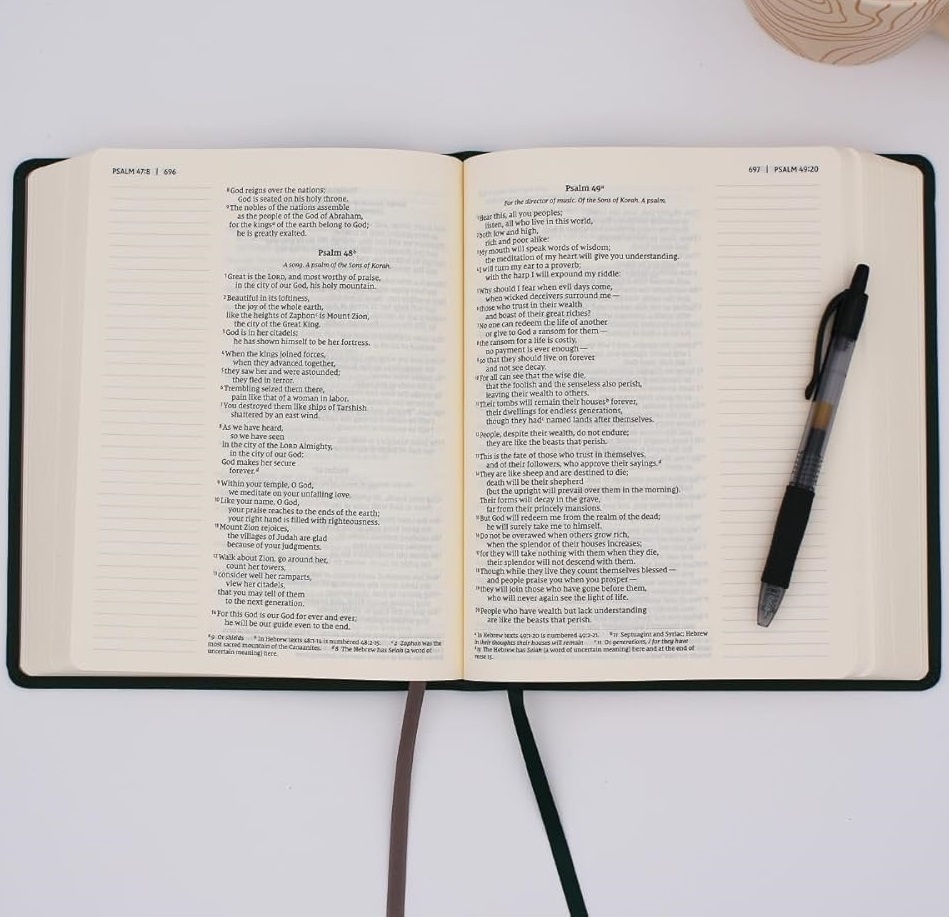 PSALM 47:8 | 696
⁸God reigns over the nations;
God is seated on his holy throne.
⁹The nobles of the nations assemble
as the people of the God of Abraham,
for the kingsᵃ of the earth belong to God;
he is greatly exalted.
Psalm 48ᵇ
A song. A psalm of the Sons of Korah.
¹Great is the LORD, and most worthy of praise,
in the city of our God, his holy mountain.
²Beautiful in its loftiness,
the joy of the whole earth,
like the heights of Zaphonᶜ is Mount Zion,
the city of the Great King.
³God is in her citadels;
he has shown himself to be her fortress.
⁴When the kings joined forces,
when they advanced together,
⁵they saw her and were astounded;
they fled in terror.
⁶Trembling seized them there,
pain like that of a woman in labor.
⁷You destroyed them like ships of Tarshish
shattered by an east wind.
⁸As we have heard,
so we have seen
in the city of the LORD Almighty,
in the city of our God:
God makes her secure
forever.ᵈ
⁹Within your temple, O God,
we meditate on your unfailing love.
¹⁰Like your name, O God,
your praise reaches to the ends of the earth;
your right hand is filled with righteousness.
¹¹Mount Zion rejoices,
the villages of Judah are glad
because of your judgments.
¹²Walk about Zion, go around her,
count her towers,
¹³consider well her ramparts,
view her citadels,
that you may tell of them
to the next generation.
¹⁴For this God is our God for ever and ever;
he will be our guide even to the end.
ᵃ9 Or shields ᵇ In Hebrew texts 48:1-14 is numbered 48:2-15. ᶜ2 Zaphon was the
most sacred mountain of the Canaanites. ᵈ8 The Hebrew has Selah (a word of
uncertain meaning) here.
697 | PSALM 49:20
Psalm 49ᵃ
For the director of music. Of the Sons of Korah. A psalm.
¹Hear this, all you peoples;
listen, all who live in this world,
²both low and high,
rich and poor alike:
³My mouth will speak words of wisdom;
the meditation of my heart will give you understanding.
⁴I will turn my ear to a proverb;
with the harp I will expound my riddle:
⁵Why should I fear when evil days come,
when wicked deceivers surround me—
⁶those who trust in their wealth
and boast of their great riches?
⁷No one can redeem the life of another
or give to God a ransom for them—
⁸the ransom for a life is costly,
no payment is ever enough—
⁹so that they should live on forever
and not see decay.
¹⁰For all can see that the wise die,
that the foolish and the senseless also perish,
leaving their wealth to others.
¹¹Their tombs will remain their housesᵇ forever,
their dwellings for endless generations,
though they hadᶜ named lands after themselves.
¹²People, despite their wealth, do not endure;
they are like the beasts that perish.
¹³This is the fate of those who trust in themselves,
and of their followers, who approve their sayings.ᵈ
¹⁴They are like sheep and are destined to die;
death will be their shepherd
(but the upright will prevail over them in the morning).
Their forms will decay in the grave,
far from their princely mansions.
¹⁵But God will redeem me from the realm of the dead;
he will surely take me to himself.
¹⁶Do not be overawed when others grow rich,
when the splendor of their houses increases;
¹⁷for they will take nothing with them when they die,
their splendor will not descend with them.
¹⁸Though while they live they count themselves blessed—
and people praise you when you prosper—
¹⁹they will join those who have gone before them,
who will never again see the light of life.
²⁰People who have wealth but lack understanding
are like the beasts that perish.
ᵃ In Hebrew texts 49:1-20 is numbered 49:2-21. ᵇ11 Septuagint and Syriac; Hebrew
In their thoughts their houses will remain ᶜ11 Or generations, / for they have
ᵈ13 The Hebrew has Selah (a word of uncertain meaning) here and at the end of
verse 15.